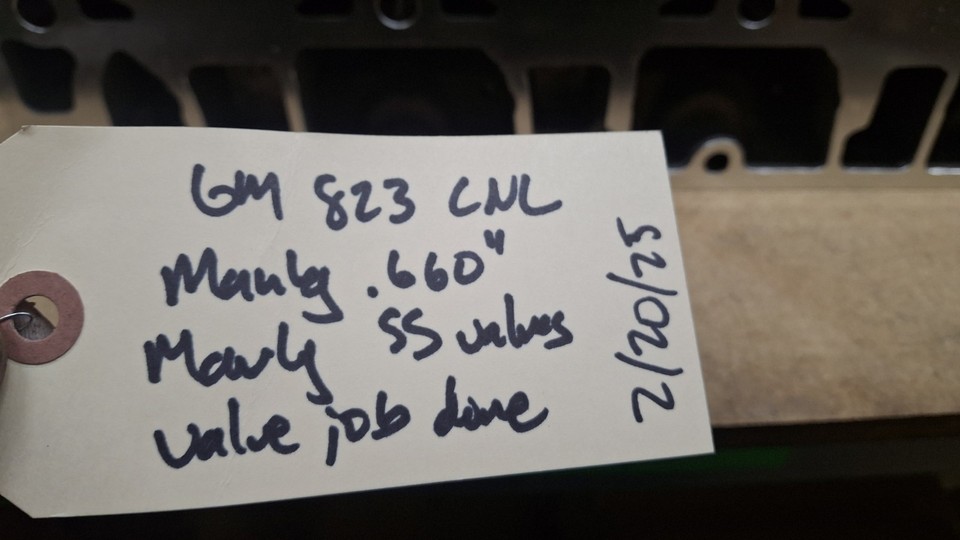 GM 823 CNC
Manly .660"
Manly SS valves
valve job done
2/20/25